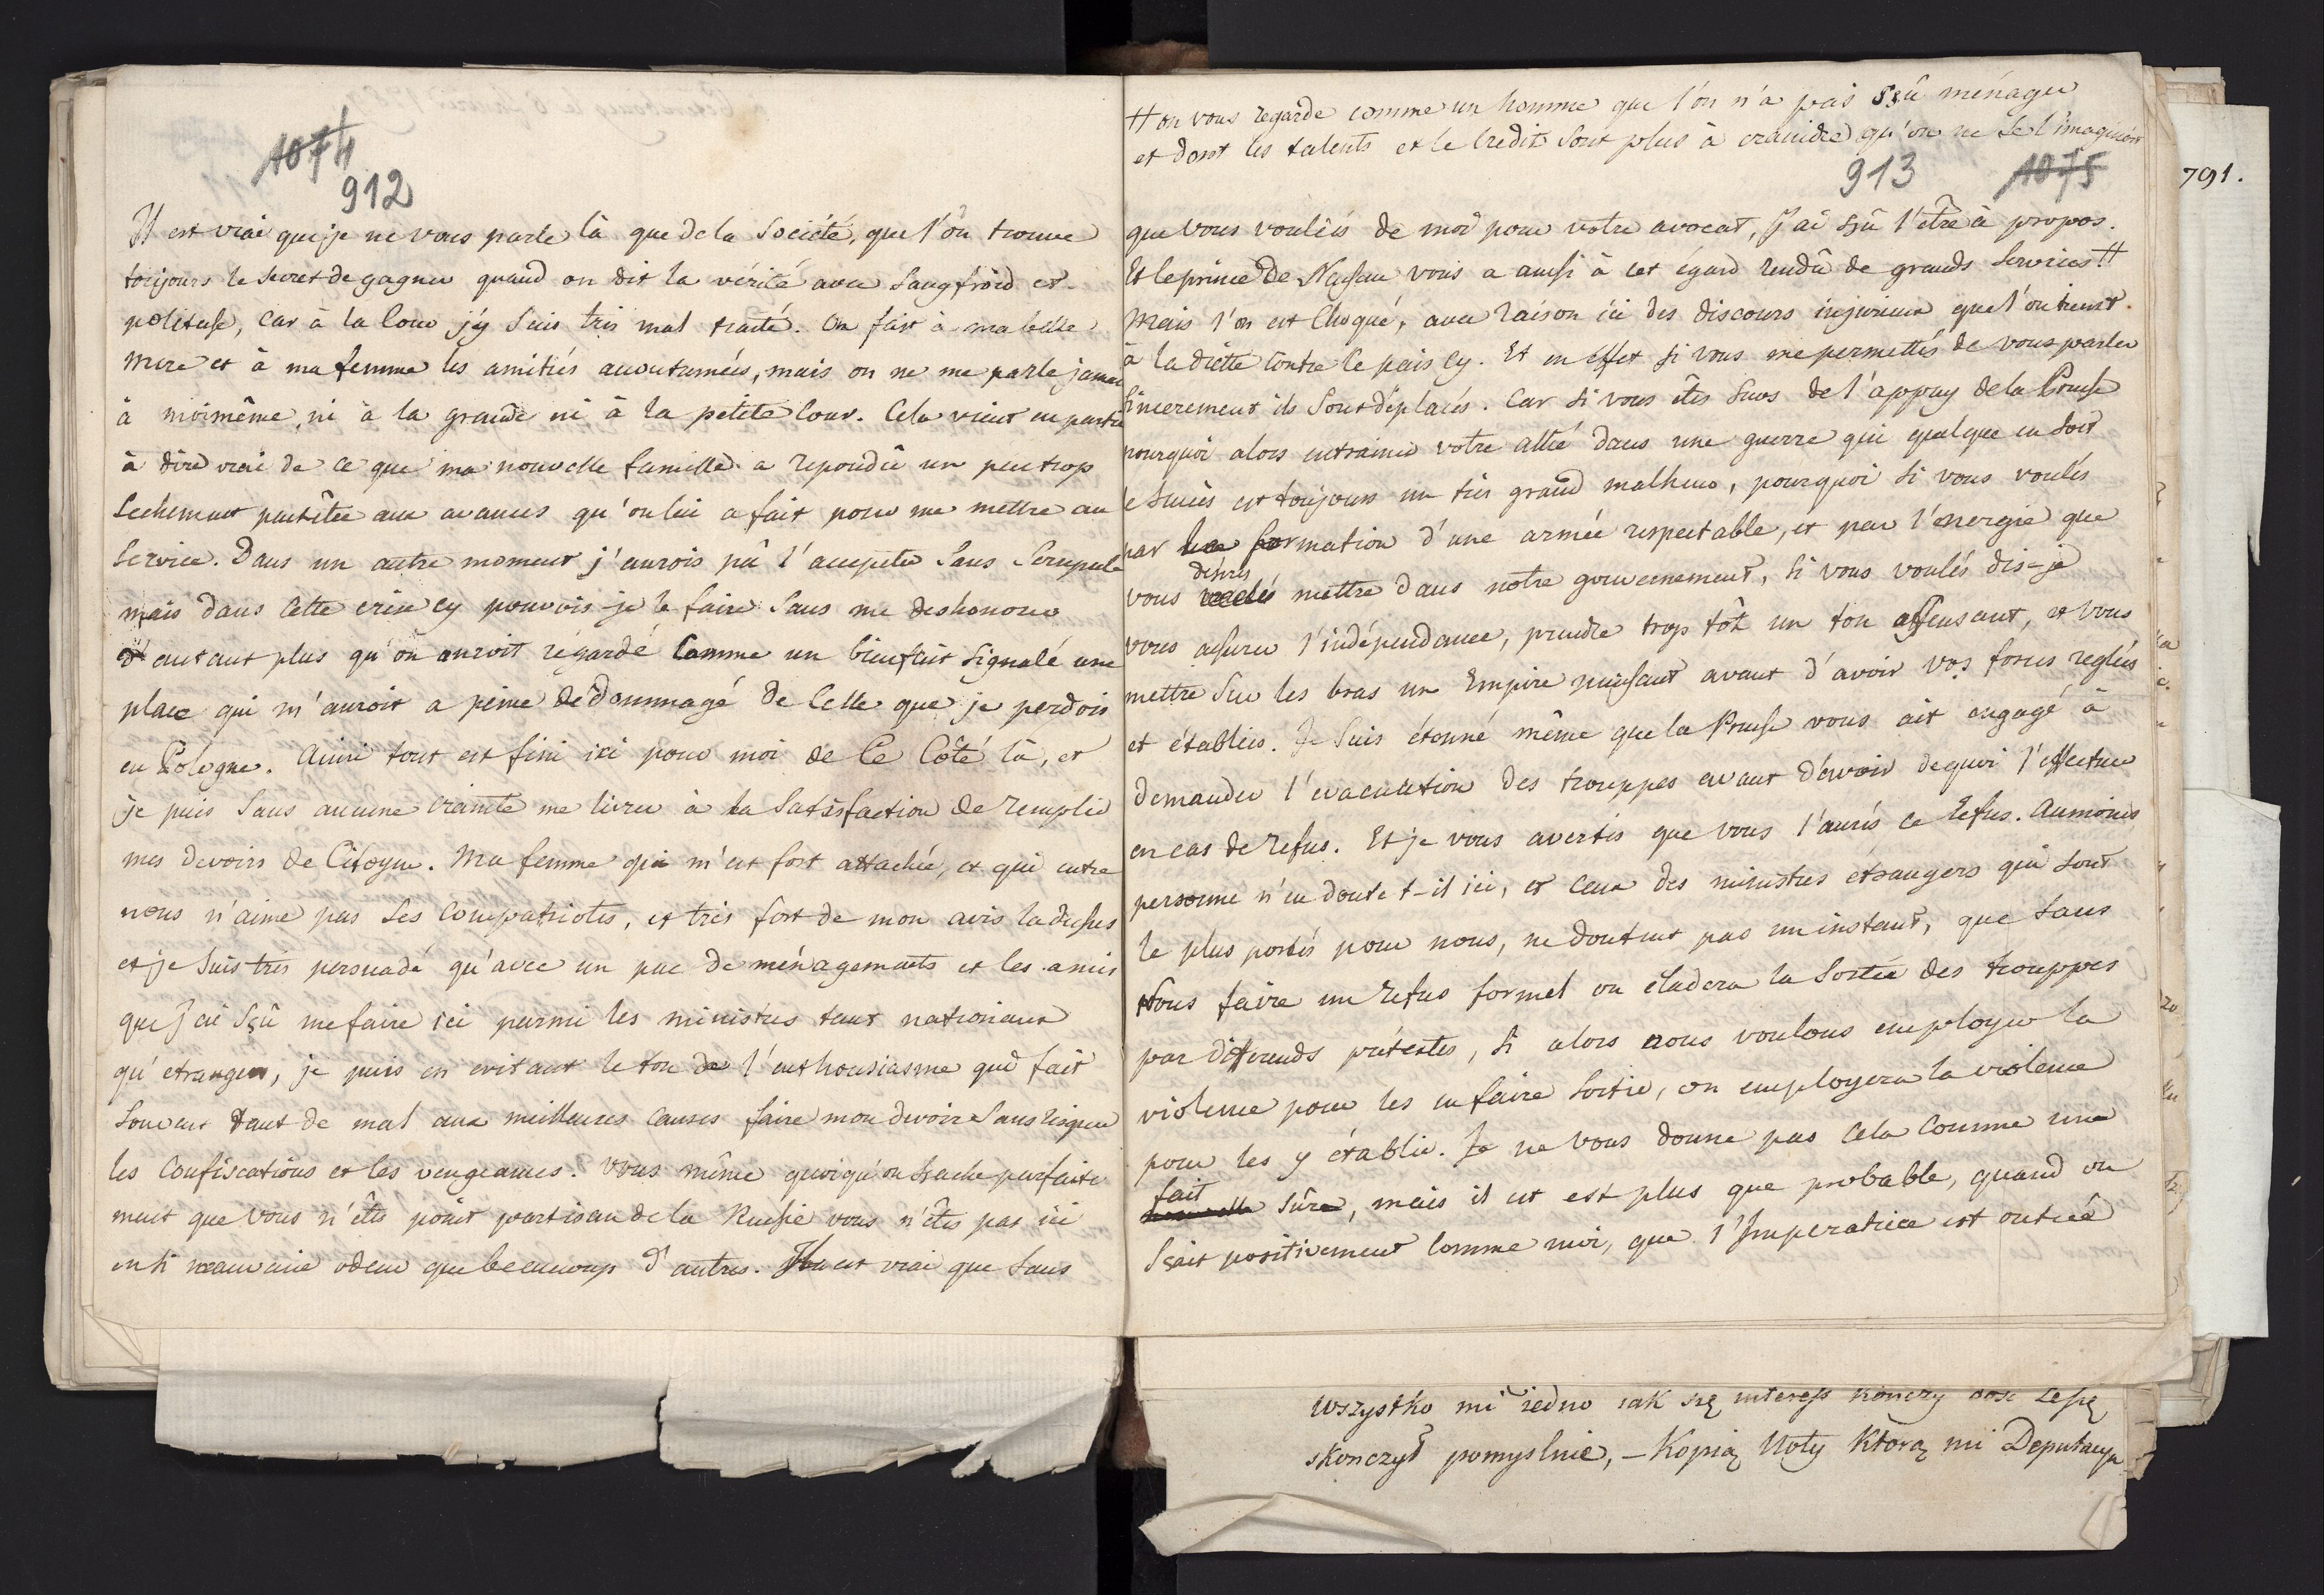 1074
912
Il est vrai que je ne vous parle là que de la Societé, que l'on trouve
toujours le secret de gagner quand on dit la vérité avec sangfroid et
politesse, car à la Cour j'y suis très mal traité. On fait à ma belle
mere et à ma femme les amitiés accoutumées, mais on ne me parle jamais
à moimême, ni à la grande ni à la petite Cour. Cela vient en partie
à dire vrai de ce que ma nouvelle famille a repondû un peu trop
sechement peutêtre aux avances qu'on lui a fait pour me mettre au
service. Dans un autre moment j'aurois pû l'accepter sans scrupule
mais dans cette crise cy pouvois-je le faire sans me deshonorer
d'autant plus qu'on auroit régardé comme un bienfait signalé une
place qui m'auroit a peine dédommagé de celle que je perdois
en Pologne. Ainsi tout est fini ici pour moi de ce Côté là, et
je puis sans aucune crainte me livrer à la satisfaction de remplir
mes devoirs de Citoyen. Ma femme qui m'est fort attachée, et qui entre
nous n'aime pas ses compatriotes, est très fort de mon avis la dessus
et je suis très persuadé qu'avec un peu de ménagements et les amis
que j'ai sçû me faire ici parmi les ministres tant nationaux
qu'etrangers, je puis en evitant le ton de l'enthousiasme qui fait
souvent tant de mal aux meilleures causes faire mon devoir sans risquer
les confiscations et les vengeances. Vous même quoiqu'on sache parfaite
ment que vous n'êtes point partisan de la Russie vous n'êtes pas ici
en si mauvaise odeur que beaucoup d'autres. Il est vrai que sans
++ on vous regarde comme un homme que l'on n'a pas sçû ménager
et dont les talents et le Credit sont plus à craindre qu'on ne se l'imaginoit
913 1075
que vous vouliés de moi pour votre avocat, j'ai sçû l'être à propos.
Et le prince de Nassau vous a aussi à cet égard rendû de grands services ++
Mais l'on est choqué, avec raison ici des discours injurieux que l'on tient
à la diette contre ce païs cy. Et en effet si vous me permettés de vous parler
sincerement ils sont déplacés. Car si vous êtes surs de l'appuy de la Prusse
pourquoi alors entrainer votre allié dans une guerre qui quelque en soit
le succès est toujours un très grand malheur, pourquoi si vous voulés
par la formation d'une armée respectable, et par l'energie que
desirés
vous voulés mettre dans notre gouvernement, si vous voulés dis-je
vous assurer l'indépendance, prendre trop tôt un ton offensant, et vous
mettre sur les bras un Empire puissant avant d'avoir vos forces reglées
et établies. Je suis étonné même que la Prusse vous ait engagé à
demander l'evacuation des trouppes avant d'avoir dequoi l'effectuer
en cas de refus. Et je vous avertis que vous l'aurés ce refus. Aumoins
personne n'en doute t-il ici, et ceux des ministres étrangers qui sont
le plus portés pour nous, ne doutent pas un instant, que sans
nous faire un refus formel on éludera la sortie des trouppes
par differends prétextes, si alors nous voulons employer la
violence pour les en faire sortir, on employera la violence
pour les y établir. Je ne vous donne pas cela comme une
fait
nouvelle sûre, mais il est est plus que probable, quand on
sçait positivement comme moi, que l'Imperatrice est outrée
791.
wszystko mi iedno iak się interess kończy dosc ze się
skonczył pomyslnie, – Kopią Noty Którą mi Deputacya